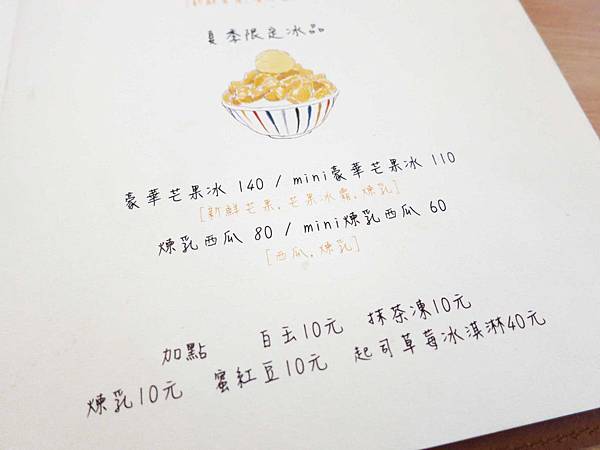 夏季限定冰品
豪華芒果冰 140 / mini豪華芒果冰 110
[新鮮芒果,芒果冰霜,煉乳]
煉乳西瓜 80 / mini煉乳西瓜 60
[西瓜,煉乳]
加點 白玉10元 抹茶凍10元
煉乳10元 蜜紅豆10元 起司草莓冰淇淋40元